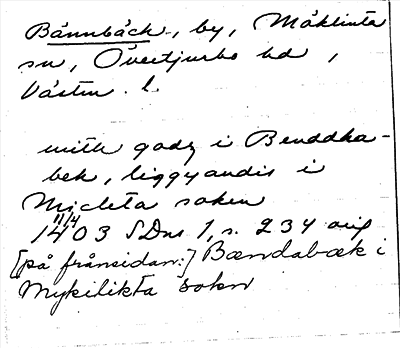 Bännbäck, by, Möklinta
sn, Övertjurbo hd,
Västm. l.
mitt godz i Benddha-
bek, liggyandis i
Micleta soken
11/4
1403 SDns 1, s. 234 orig
[på frånsidan:] Bændabæk i
Mykilikta sokn